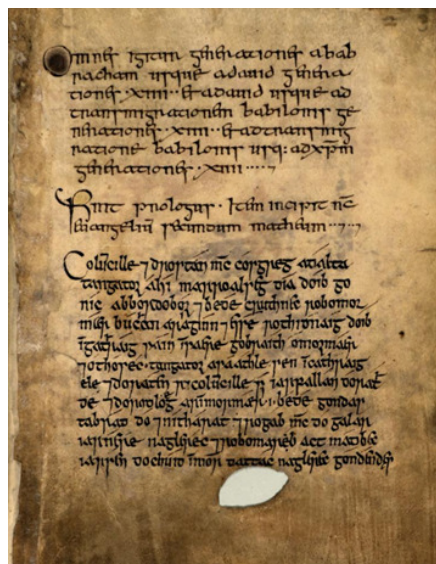 Omnes igitur generationes ab ab
racham usque ad dauid genera
tiones .xiiii.. et a dauid usque ad
transmigrationem babilonis ge
nerationes .xiiii.. et ad transmig
ratione babilonis usq: ad xp̄m
generationes .xiiii.....
Finit prologus. Item incipit nc̄
euangeliū secundum matheum
Colūcille ⁊ drostán mc̄ cosgreg adalta
tangator ahi marroalseg dia doib go
nic abbordobor ⁊ bede cruthnec robomor
buchan araginn ⁊ esse rothidnaig doib
ingathraig sain insaere gobraith omormaer
⁊ othosec. tangator asaathle sen incathraig
ele ⁊ doraten ri colūcille si iarfallan dorath
de ⁊ dorodloeg arinmormaer .i. bede gondas
tabrad do ⁊ nitharat ⁊ rogab mc̄ do galar
iarnere naglerec ⁊ robomareb act madbec
iarsen dochuid inmor dattac naglerec gondendes